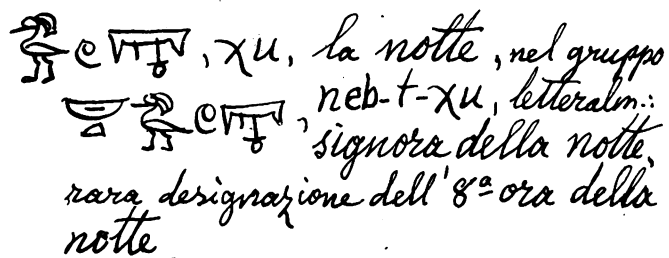 𓅜𓏲𓇰, χu, la notte, nel gruppo
𓎟𓏏𓅜𓏲𓇰, neb-t-χu, letteralm.:
signora della notte,
rara designazione dell'8ª ora della
notte